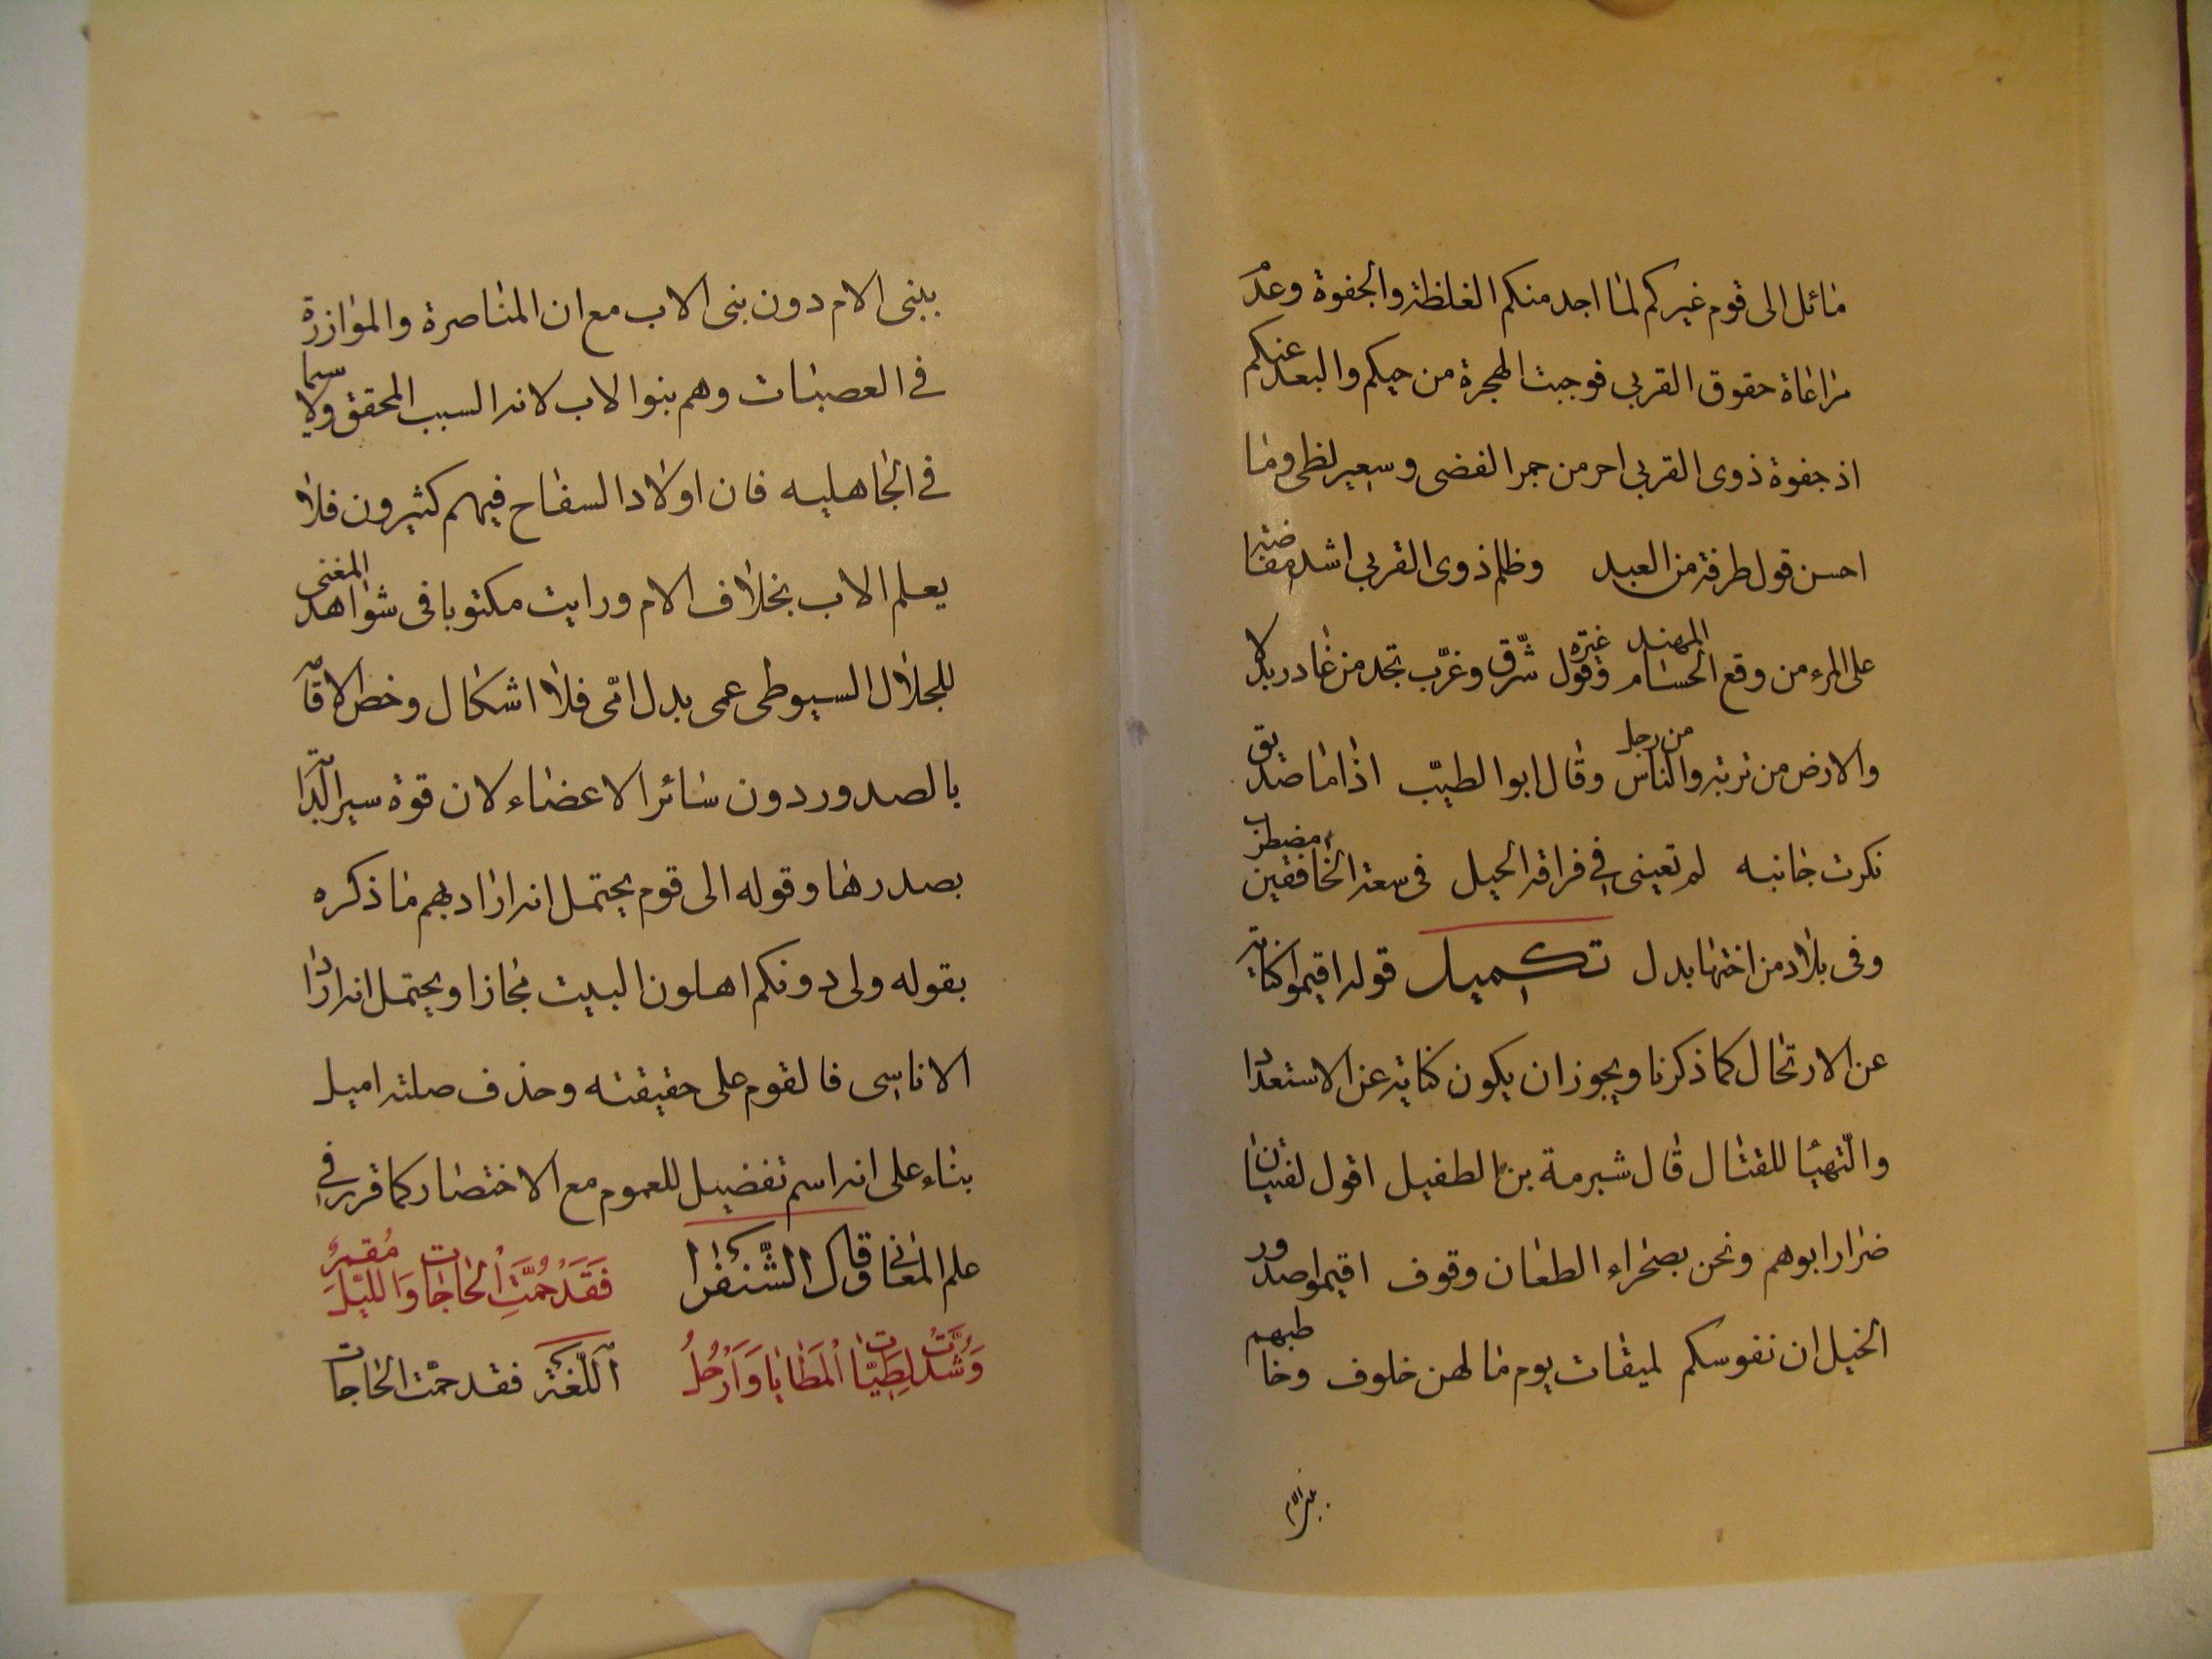 مائل الى قوم غيركم لما اجد منكم الغلظة والجفوة وعدم
مراعاة حقوق القربى فوجبت الهجرة من حيكم والبعد عنكم
اذ جفوة ذوى القربى احر من جمر الغضى وسعير لظى وما
احسن قول طرفة من العبد وظلم ذوى القربى اشد مضاضة
على المرء من وقع الحسام المهند وقول غيره شرّق وغرّب تجد من غادر بدلا
والارض من تربة والناس من رجل وقال ابو الطيّب اذا ما صديق
نكرت جانبه لم تعينى فى فراقه الحيل فى سعة الخافقين مضطرب
وفى بلاد من اختها بدل تكميل قوله اقيموا كناية
عن الارتحال كما ذكرنا ويجوز ان يكون كناية عن الاستعداد
والتهيّا للقتال قال شبرمة بن الطفيل اقول لفتيان
ضرار ابوهم ونحن بصحراء الطعان وقوف اقيموا صدور
الخيل ان نفوسكم لميقات يوم ما لهن خلوف وخاطبهم
ببنى الام دون بنى الاب مع ان المناصرة والموازرة
فى العصبات وهم بنوا الاب لانه السبب المحقق ولا سيما
فى الجاهليه فان اولاد السفاح فيهم كثيرون فلا
يعلم الاب بخلاف الام ورايت مكتوبا فى شواهد المغنى
للجلال السيوطى عمى بدل امّى فلا اشكال وخص الاقامة
بالصدور دون سائر الاعضاء لان قوة سير الدّابّة
بصدرها وقوله الى قوم يحتمل انه اراد بهم ما ذكره
بقوله ولى دونكم اهلون البيت مجازا ويحتمل انه اراد
الاناسى فالقوم على حقيقته وحذف صلته اميل
بناء على انه اسم تفضيل للعموم مع الاختصار كما قرر فى
علم المعانى وقال الشّنفرا فَقَدْ حُمَّتِ الْحَاجَاتُ وَاللّيْلُ مُقْمِرٌ
وَشُدَّتْ لِطِيَّاتٍ الْمَطَايَا وَاَرْحُلُ اَللُّغَة فقد حمّت الحاجات